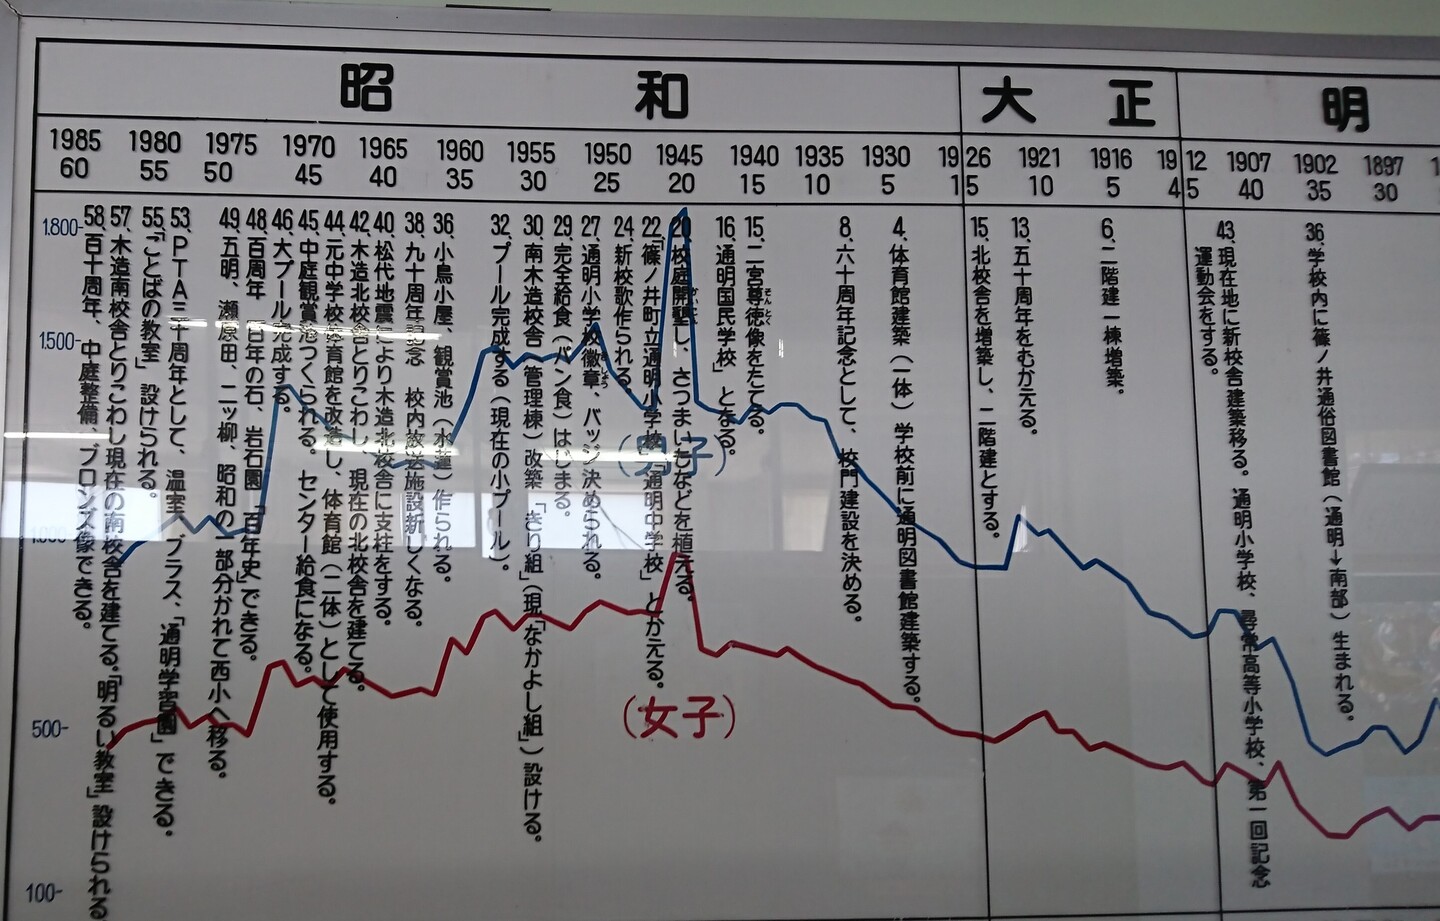 昭和
大正
明
1985 1980 1975 1970 1965 1960 1955 1950 1945 1940 1935 1930 1926 1921 1916 1912 1907 1902 1897
60 55 50 45 40 35 30 25 20 15 10 5 15 10 5 45 40 35 30
1.800-
1.500-
1.000
500-
100-
36.学校内に篠ノ井通俗図書館(通明→南部)生まれる。
43.現在地に新校舎建築移る。通明小学校、尋常高等小学校、第一回記念
運動会をする。
6.二階建一棟増築。
13.五十周年をむかえる。
15.北校舎を増築し、二階建とする。
4.体育館建築(一体)学校前に通明図書館建築する。
8.六十周年記念として、校門建設を決める。
15.二宮尊徳像をたてる。
そんとく
16.「通明国民学校」となる。
20.校庭開墾し、さつまいもなどを植える。
22.「篠ノ井町立通明小学校」「通明中学校」とかえる。
24.新校歌作られる。
27.通明小学校徽章、バッジ決められる。
29.完全給食(パン食)はじまる。
30.南木造校舎(管理棟)改築「きり組」(現「なかよし組」)設ける。
32.プール完成する(現在の小プール)。
36.小鳥小屋、観賞池(水蓮)作られる。
38.九十周年記念 校内放送施設新しくなる。
40.松代地震により木造北校舎に支柱をする。
42.木造北校舎とりこわし、現在の北校舎を建てる。
44.元中学校体育館を改造し、体育館(二体)として使用する。
45.中庭観賞池つくられる。センター給食になる。
46.大プール完成する。
48.百周年 百年の石、岩石園「百年史」できる。
49.五明、瀬原田、二ッ柳、昭和の一部分かれて西小へ移る。
53.PTA三十周年として、温室、プラス、「通明学習園」できる。
55.「ことばの教室」設けられる。
57.木造南校舎とりこわし現在の南校舎を建てる。「明るい教室」設けられる
58.百十周年、中庭整備、ブロンズ像できる。
(男子)
(女子)